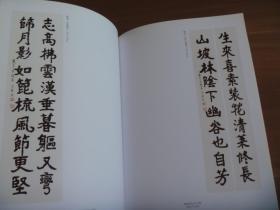 生來喜素裝花清葉修長
山坡林陰下幽谷也自芳
志高拂雲漢垂暮軀又彎
篩月影如篦梳風節更堅